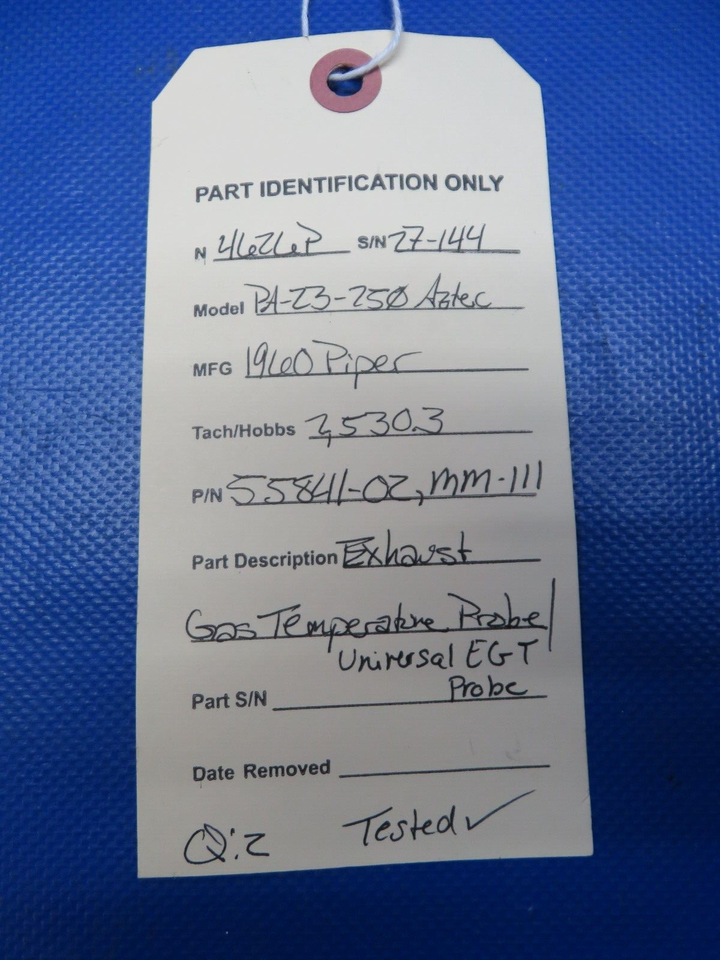 PART IDENTIFICATION ONLY
N 4626P S/N 27-144
Model PA-23-250 Aztec
MFG 1960 Piper
Tach/Hobbs 2,530.3
P/N 55841-02, MM-111
Part Description Exhaust
Gas Temperature Probe/
Universal EGT
Part S/N Probe
Date Removed
Q:2 Tested✓